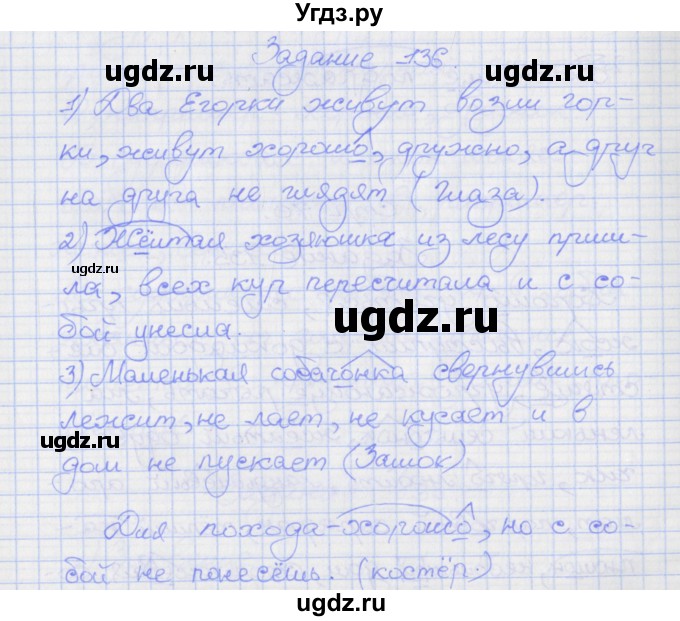 Угдз.ру
Задание 136.
1) Два Егорки живут возли гор-
ки, живут хорошо, дружно, а друг
на друга не глядят (Глаза).
2) Жёлтая хозяюшка из лесу приш-
ла, всех кур пересчитала и с со-
бой унесла.
3) Маленькая собачонка свернувшись
лежит, не лает, не кусает и в
дом не пускает (Замок)
Для похода-хорошо, но с со-
бой не понесёшь. (костёр.)
ugdz.ru
ugdz.ru
ugdz.ru
ugdz.ru
ugdz.ru
ugdz.ru
ugdz.ru
ugdz.ru